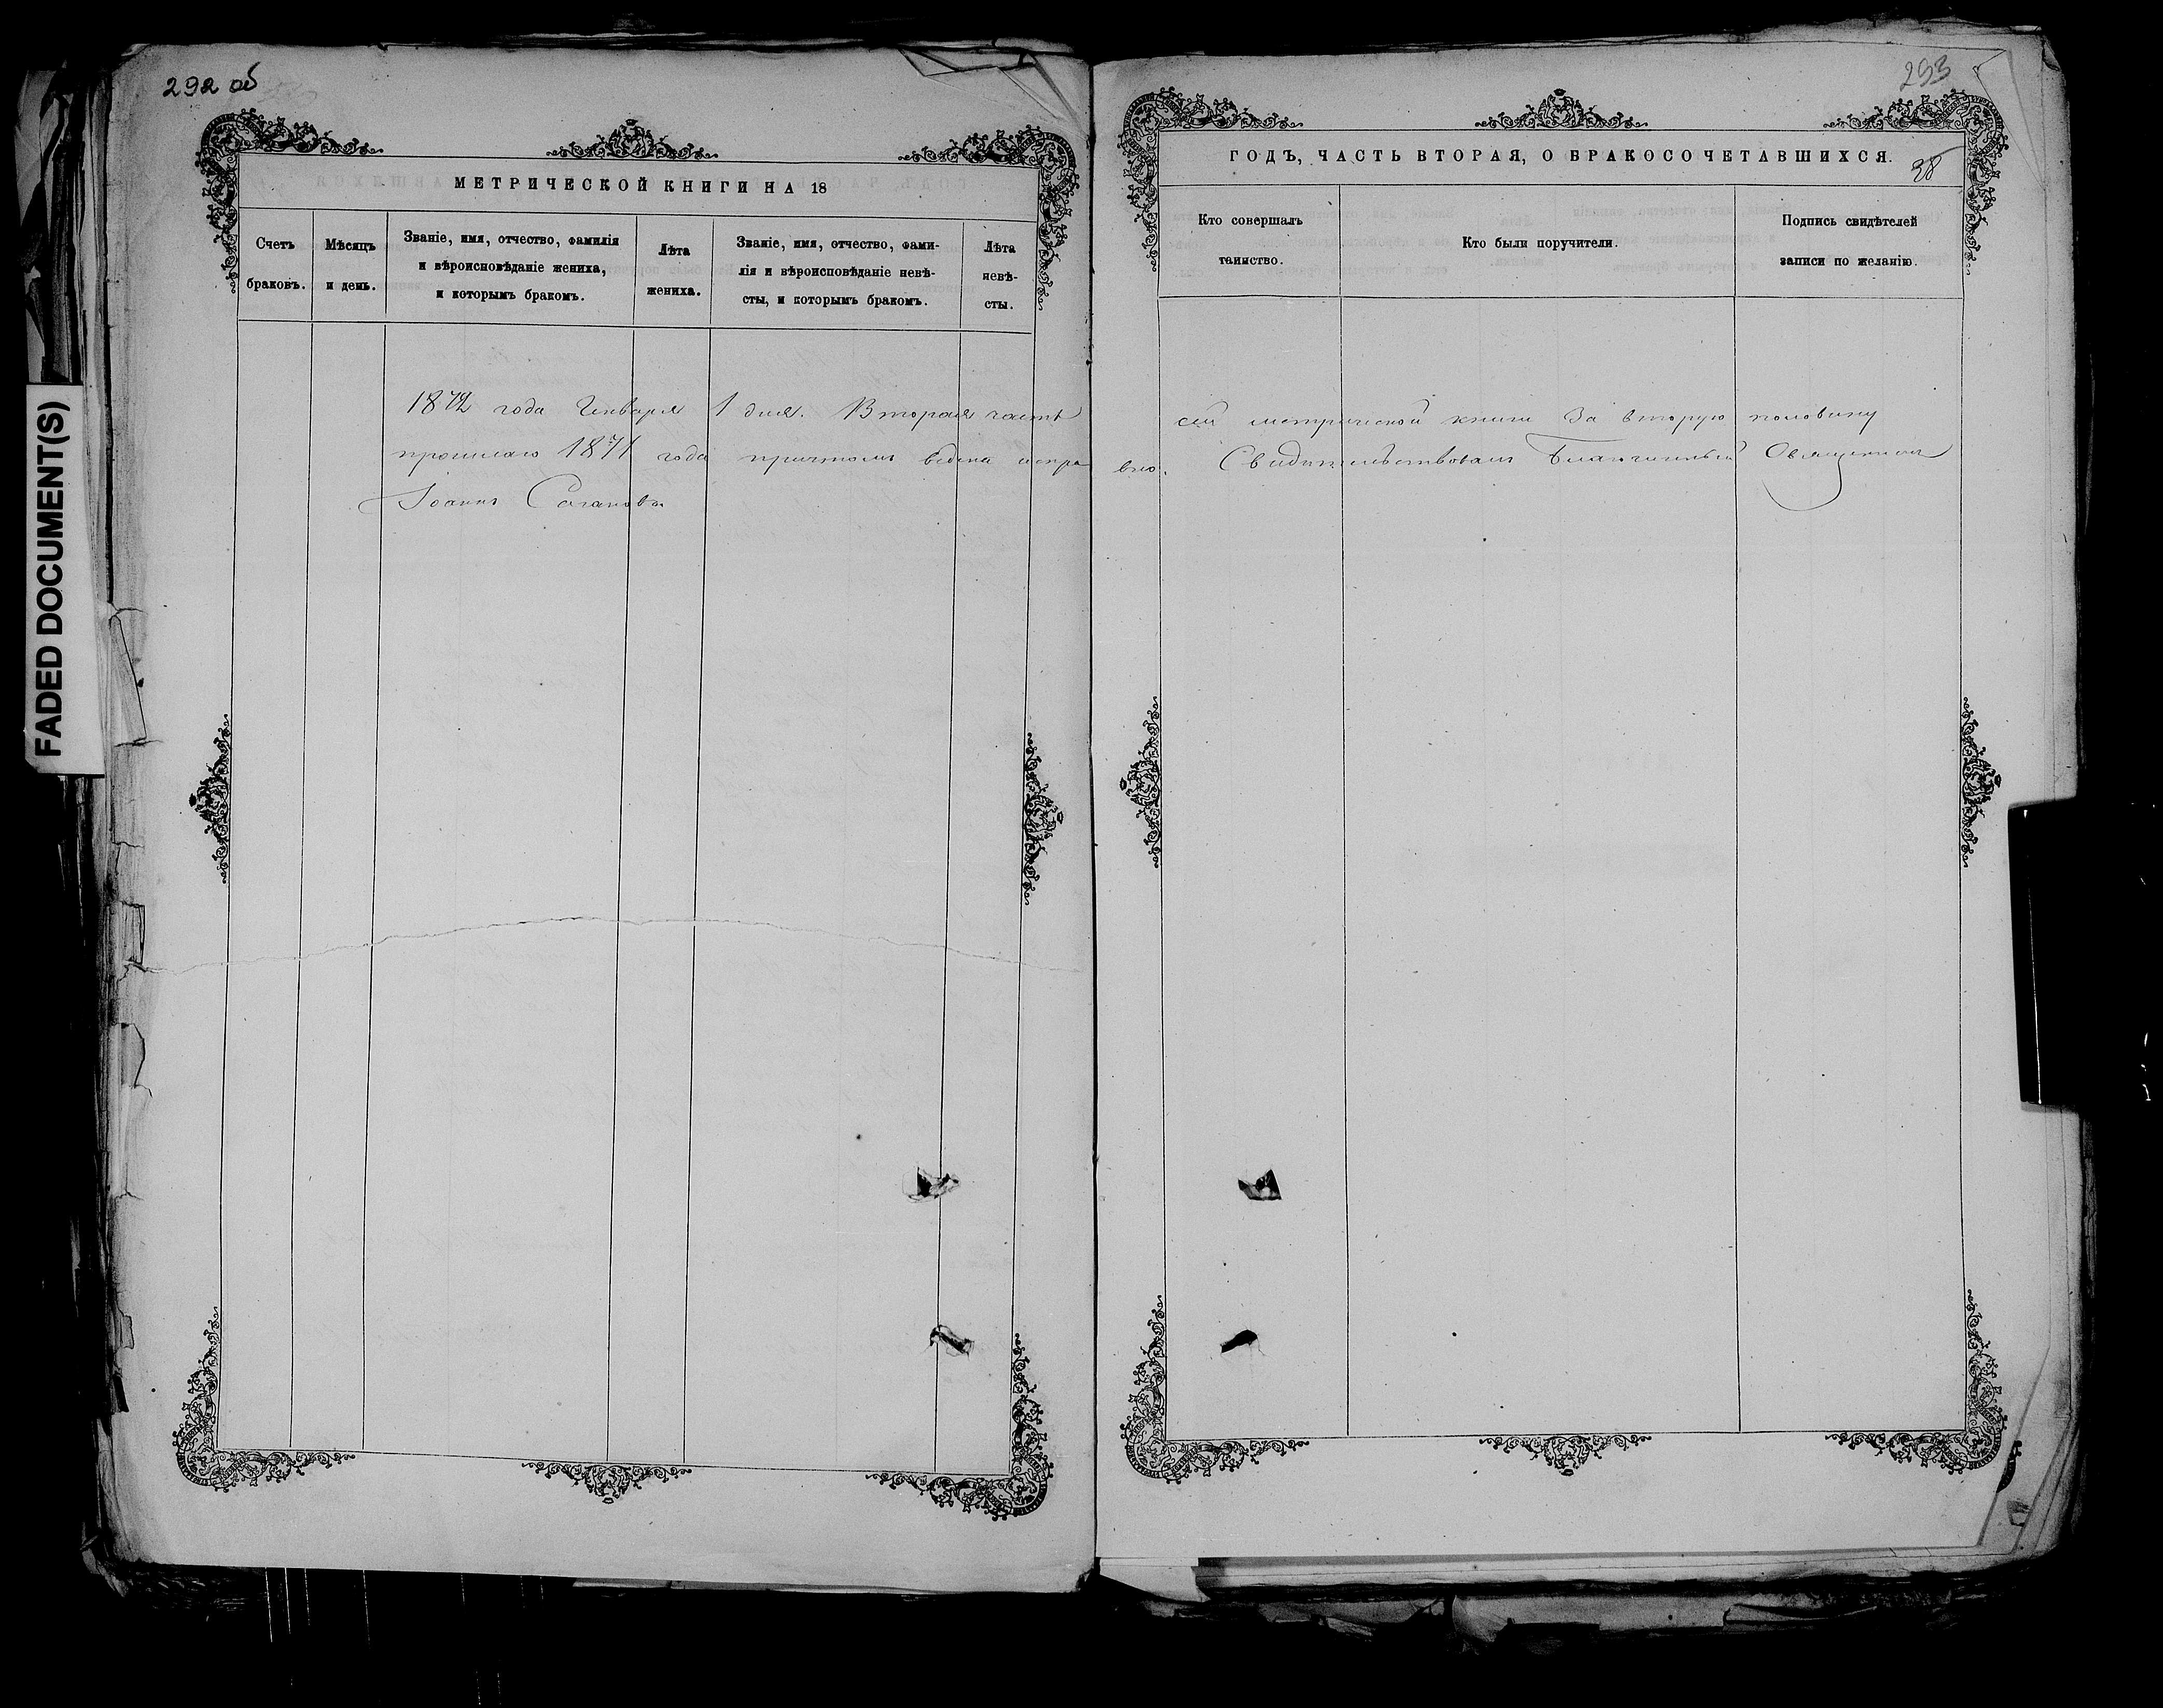 292 об
МЕТРИЧЕСКОЙ КНИГИ НА 18
Счетъ браковъ.
Мѣсяцъ и день.
Званіе, имя, отчество, фамилія
и вѣроисповѣданіе жениха,
и которымъ бракомъ.
Лѣта
жениха.
Званіе, имя, отчество, фами-
лія и вѣроисповѣданіе невѣ-
сты, и которымъ бракомъ.
Лѣта
невѣ-
сты.
293
ГОДЪ, ЧАСТЬ ВТОРАЯ, О БРАКОСОЧЕТАВШИХСЯ.
38
Кто совершалъ
таинство.
Кто были поручители.
Подпись свидѣтелей
записи по желанію.
1872 года Генваря 1 дня. Вторая часть сей метрической книги за вторую половину
прошлаго 1871 года причтомъ ведена исправно. Свидѣтельствовалъ Благочинный Священникъ
Іоаннъ
FADED DOCUMENT(S)